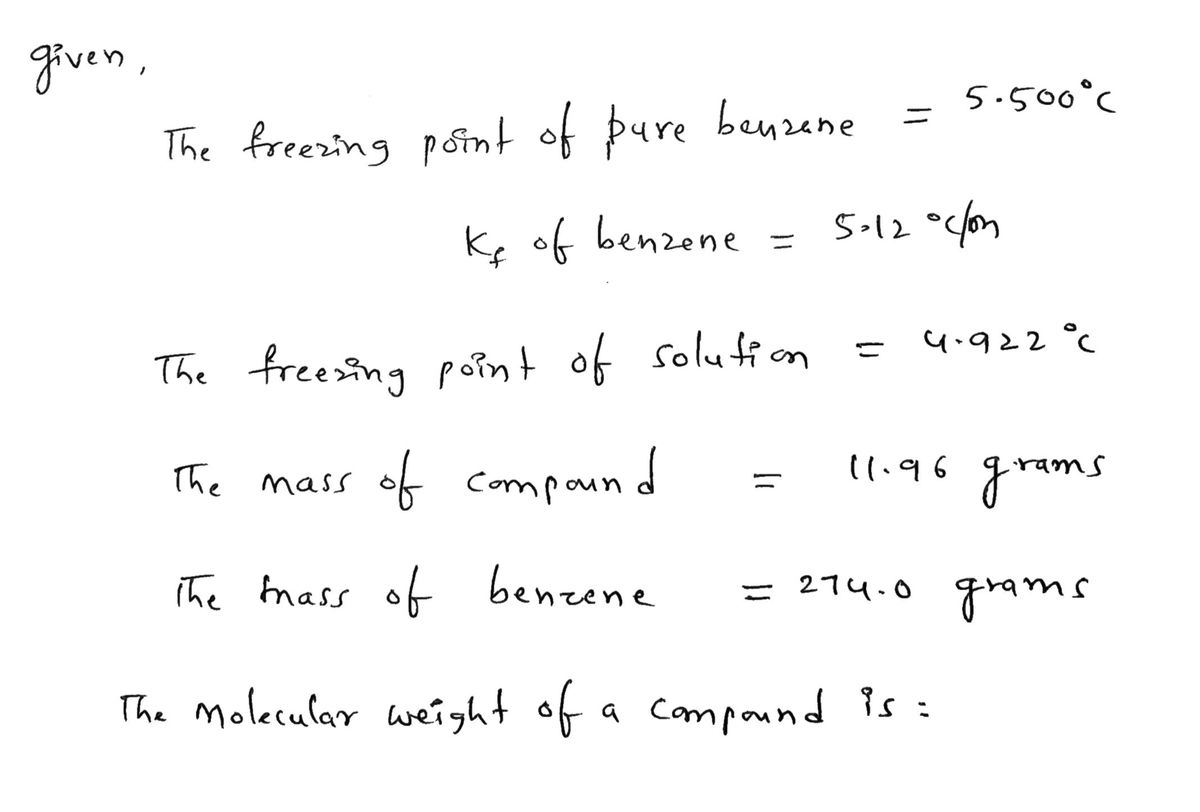 given,
The freezing point of pure benzene = 5.500°C
Kf of benzene = 5.12 °c/m
The freezing point of solution = 4.922 °c
The mass of compound = 11.96 grams
The mass of benzene = 274.0 grams
The Molecular weight of a compound is :